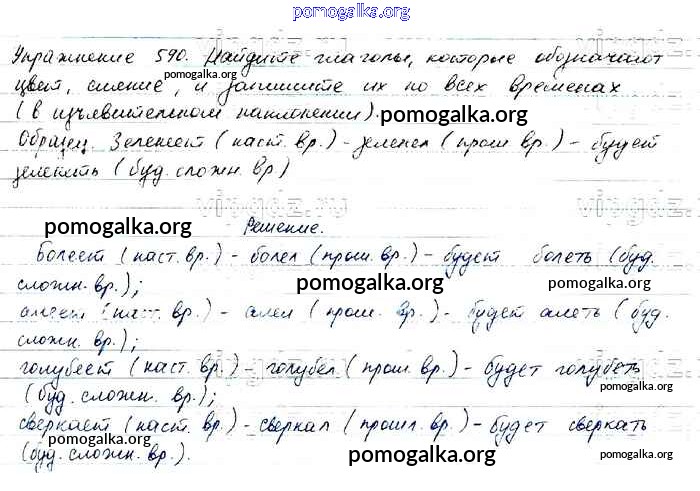 pomogalka.org
Упражнение 590. Найдите глаголы, которые обозначают
цвет, сияние, и запишите их по всех временах
pomogalka.org
(в изъявительном наклонении).
pomogalka.org
Образец. Зеленеет (наст. вр.) - зеленел (прош вр.) - будет
pomogalka.org
зеленеть (буд. сложн. вр)
vipgdz.ru
pomogalka.org
Решение.
Болеет (наст. вр.) - болел (прош. вр.) - будет болеть (буд.
pomogalka.org
сложн. вр.);
pomogalka.org
pomogalka.org
алеет (наст. вр.) - алел (прош. вр.) - будет алеть (буд.
pomogalka.org
сложн. вр.);
голубеет (наст. вр.) - голубел (прош вр.) - будет голубеть
pomogalka.org
(буд. сложн. вр.);
pomogalka.org
сверкает (наст. вр.) - сверкал (прошл. вр.) - будет сверкать
pomogalka.org
(буд. сложн. вр.).
pomogalka.org
pomogalka.org